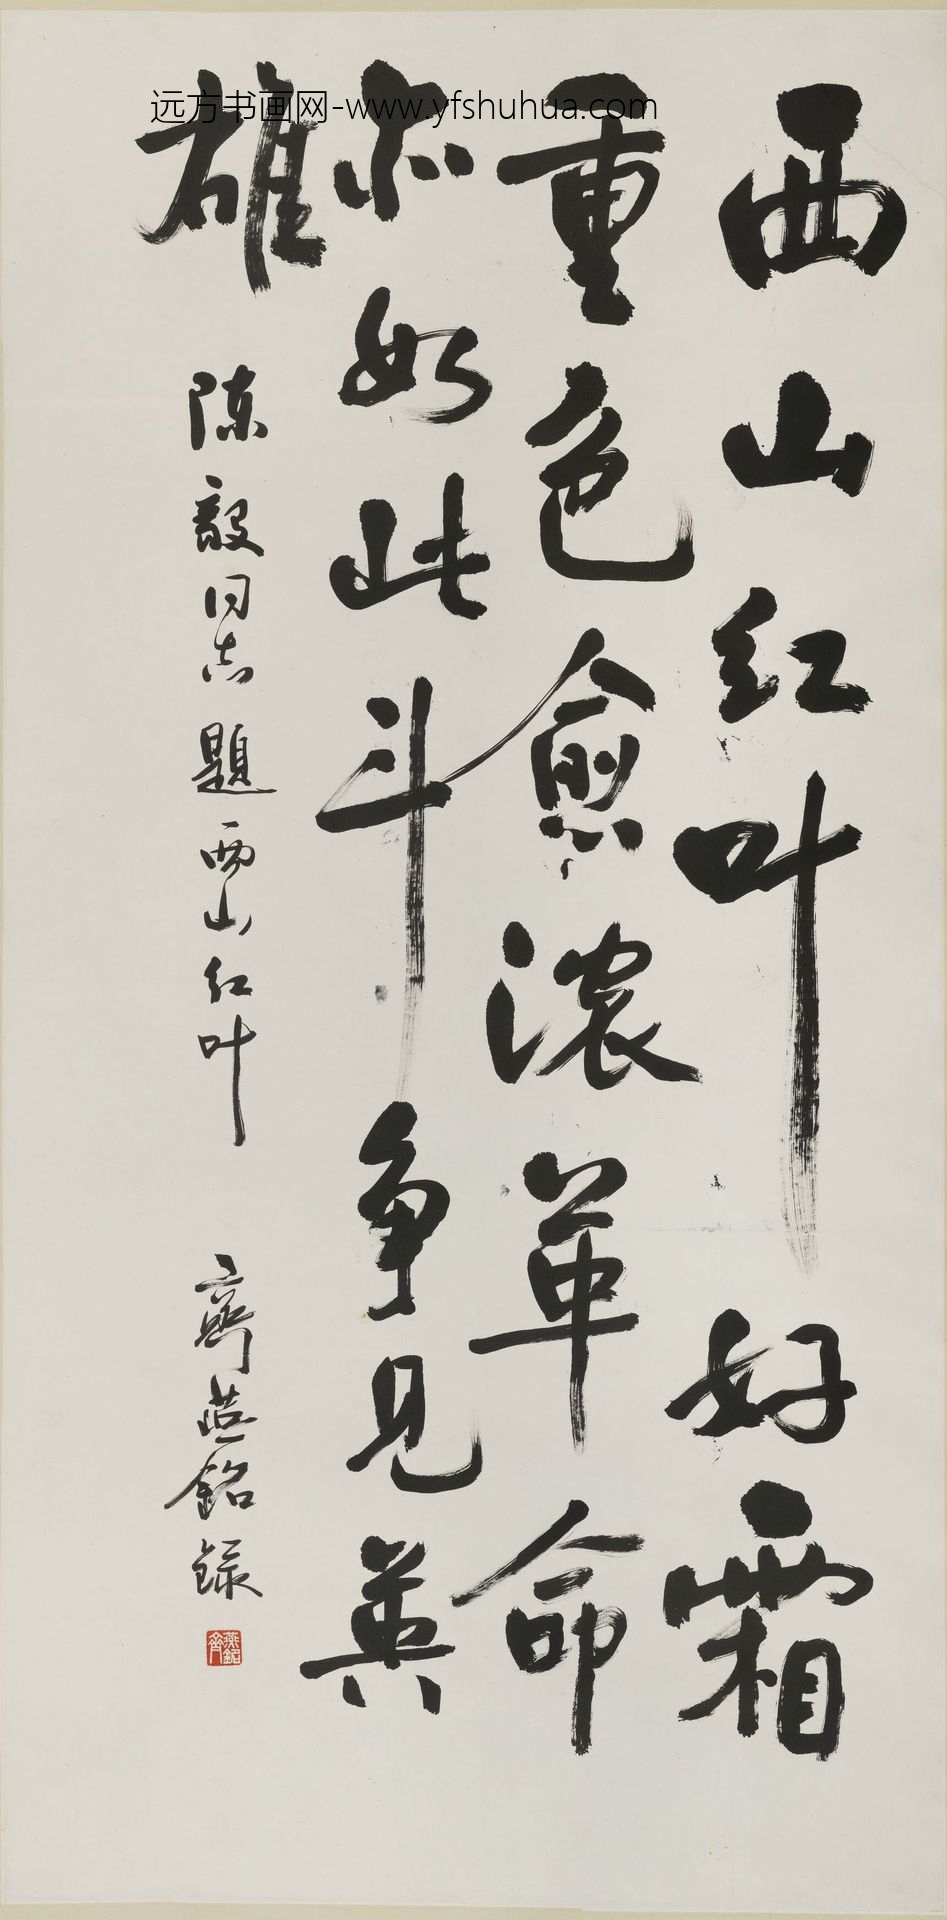 远方书画网-www.yfshuhua.com
西山红叶好霜
重色愈浓革命
亦如此斗争见英
雄
陈毅同志题西山红叶
齐燕铭录
燕銘
齊